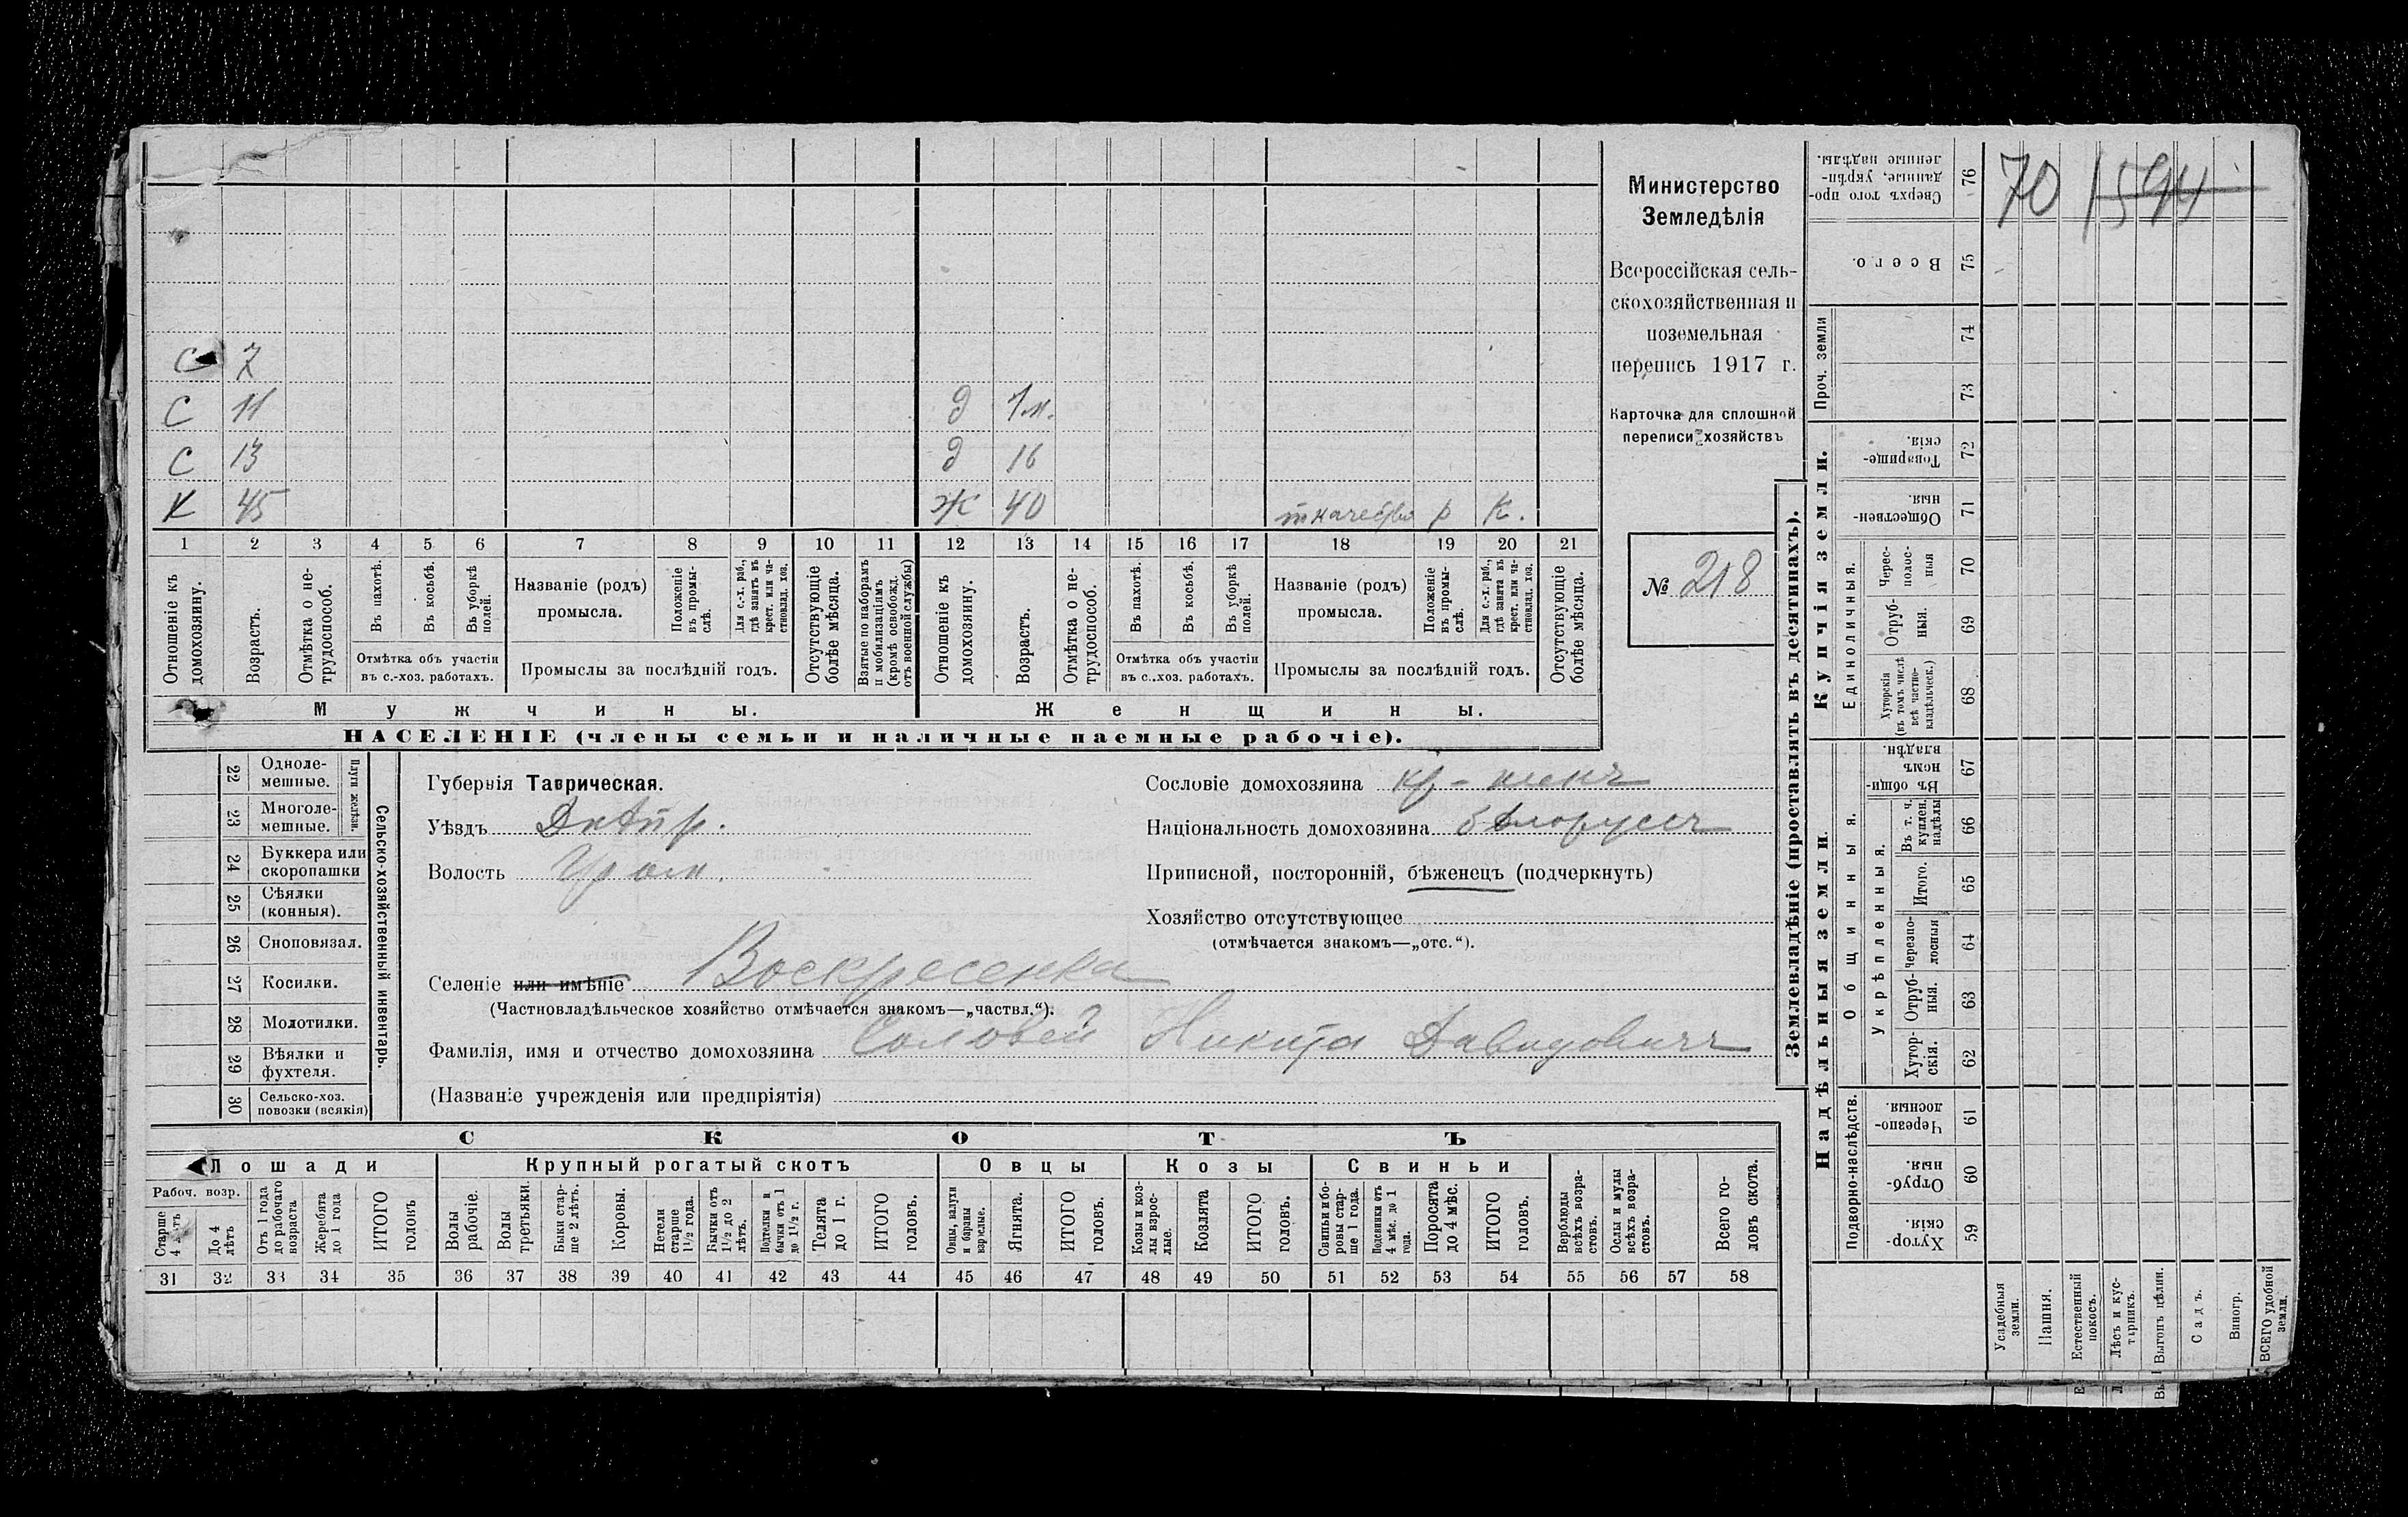 С 7
С 11 д 1 м.
С 13 д 16
К 45 Ж 40 ткачество р К.
1 2 3 4 5 6 7 8 9 10 11 12 13 14 15 16 17 18 19 20 21
Отношеніе къ домохозяину.
Возрастъ.
Отмѣтка о не-
трудоспособ.
Въ пахотѣ.
Въ косьбѣ.
Въ уборкѣ
полей.
Отмѣтка объ участіи
въ с.-хоз. работахъ.
Названіе (родъ)
промысла.
Положеніе
въ промы-
слѣ.
Для с.-х. раб.,
гдѣ занятъ въ
крест. или ча-
стновлад. хоз.
Промыслы за послѣдній годъ.
Отсутствующіе
болѣе мѣсяца.
Взятые по наборамъ
и мобилизаціямъ
(кромѣ освобожд.
отъ военной службы)
Отношеніе къ
домохозяину.
Возрастъ.
Отмѣтка о не-
трудоспособ.
Въ пахотѣ.
Въ косьбѣ.
Въ уборкѣ
полей.
Отмѣтка объ участіи
въ с..хоз. работахъ.
Названіе (родъ)
промысла.
Положеніе
въ промы-
слѣ.
Для с.-х. раб.,
гдѣ занята въ
крест. или ча-
стновлад. хоз.
Промыслы за послѣдній годъ.
Отсутствующіе
болѣе мѣсяца.
Мужчины. Женщины.
НАСЕЛЕНІЕ (члены семьи и наличные наемные рабочіе).
Министерство
Земледѣлія
Всероссійская сель-
скохозяйственная и
поземельная
перепись 1917 г.
Карточка для сплошной
переписи хозяйствъ
№ 218
22 Одноле-
мешные.
23 Многоле-
мешные.
Плуги желѣзн.
24 Буккера или
скоропашки
25 Сѣялки
(конныя).
26 Сноповязал.
27 Косилки.
28 Молотилки.
29 Вѣялки и
фухтеля.
30 Сельско-хоз.
повозки (всякія)
Сельско-хозяйственный инвентарь.
Губернія Таврическая.
Уѣздъ Днѣпр.
Волость
Селеніе или имѣніе Воскресенка
(Частновладѣльческое хозяйство отмѣчается знакомъ—„частвл.“).
Фамилія, имя и отчество домохозяина Соловей Никита Давидовичъ
(Названіе учрежденія или предпріятія)
Сословіе домохозяина
Національность домохозяина бѣлоруссъ
Приписной, посторонній, бѣженецъ (подчеркнуть)
Хозяйство отсутствующее
(отмѣчается знакомъ—„отс.“).
СКОТЪ
Лошади Крупный рогатый скотъ Овцы Козы Свиньи
Рабоч. возр.
Старше
4 лѣтъ
До 4
лѣтъ
Отъ 1 года
до рабочаго
возраста
Жеребята
до 1 года
ИТОГО
головъ
Волы
рабочіе.
Волы
третьяки.
Быки стар-
ше 2 лѣтъ.
Коровы.
Нетели
старше
1½ года.
Бычки отъ
1½ до 2
лѣтъ.
Подтелки и
бычки отъ 1
до 1½ г.
Телята
до 1 г.
ИТОГО
головъ.
Овцы, валухи
и бараны
взрослые.
Ягнята.
ИТОГО
головъ.
Козы и коз-
лы взрос-
лые.
Козлята
ИТОГО
головъ.
Свиньи и бо-
ровы стар-
ше 1 года.
Подсвинки отъ
4 мѣс. до 1
года.
Поросята
до 4 мѣс.
ИТОГО
головъ.
Верблюды
всѣхъ возра-
стовъ.
Ослы и мулы
всѣхъ возра-
стовъ.
Всего го-
ловъ скота.
31 32 33 34 35 36 37 38 39 40 41 42 43 44 45 46 47 48 49 50 51 52 53 54 55 56 57 58
Землевладѣніе (проставлять въ десятинахъ).
Сверхъ того про-
данные, укрѣп-
ленные надѣлы.
76
70 1594
Всего.
75
Проч. земли
74
73
Купчія земли.
Товарище-
скія.
72
Обществен-
ныя.
71
Единоличныя.
Черес-
полос-
ныя
70
Отруб-
ныя.
69
Хуторскія
(въ томъ числѣ
всѣ частно-
владѣльческ.)
68
Надѣльныя земли
Общинныя.
Въ общи-
номъ
владѣн.
67
Укрѣпленныя.
Въ т. ч.
куплен.
надѣлы
66
Итого.
65
Черезпо-
лосныя
64
Отруб-
ныя.
63
Хутор-
скія.
62
Подворно-наслѣдств.
Черезпо-
лосныя.
61
Отруб-
ныя.
60
Хутор-
скія.
59
Усадебныя
земли.
Пашня.
Естественный
покосъ.
Лѣсъ и кус-
тарникъ.
Выгонъ цѣлин.
Садъ.
Виногр.
ВСЕГО удобной
земли.